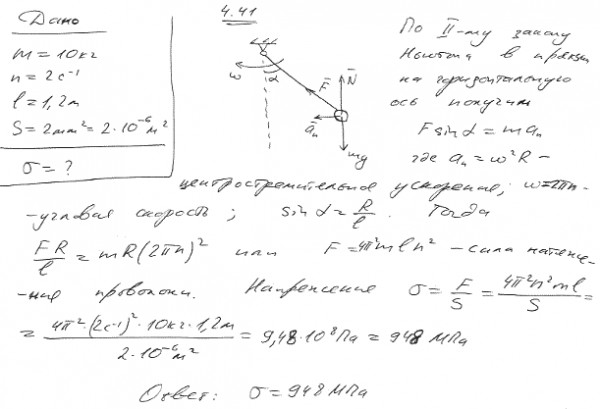 4.41
Дано
m = 10 кг
n = 2 с⁻¹
l = 1,2 м
S = 2 мм² = 2·10⁻⁶ м²
σ = ?
ω α F̄ N̄
āₙ
mg
По II-му закону
Ньютона в проекции
на горизонтальную
ось получим
F sin α = maₙ
где aₙ = ω²R –
центростремительное ускорение; ω = 2πn –
– угловая скорость; sin α = R/l . Тогда
FR/l = mR(2πn)² или F = 4π²mln² – сила натяже-
-ния проволоки. Напряжение σ = F/S = 4π²n²ml/S =
= 4π²·(2с⁻¹)²·10кг·1,2м / 2·10⁻⁶м² = 9,48·10⁸ Па = 948 МПа
Ответ: σ = 948 МПа